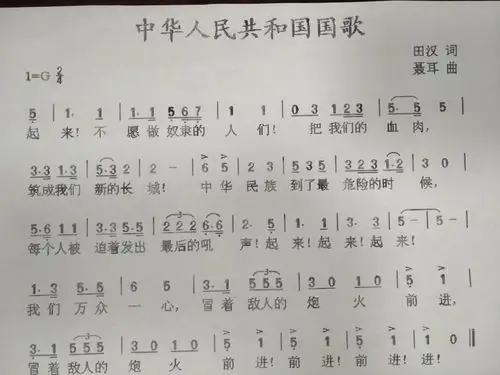 中华人民共和国国歌
田汉 词
1=G 2/4
聂耳 曲
5 | 1. 1 | 1.1 5 6 7 | 1 1 | 0 3 1 2 3 | 5 5 |
起 来！不 愿做 奴隶的 人 们！ 把 我们的 血 肉，
3.3 1.3 | 5.3 2 | 2 - | 6 5 | 2 3 | 5 3 0 5 | 3 2 3 1 | 3 0 |
筑成我们 新的长 城！ 中华 民族 到了最 危险的时 候，
5.6 1 1 | 3.3 5 5 | 2 2 2 6 | 2. 5 | 1. 1 | 3. 3 | 5 - | 5 - |
每个人被 迫着发出 最后的吼 声！起来！起来！起来！
1. 3 5 5 | 6 5 | 3. 1 5 5 5 | 3 0 1 0 | 5 1 |
我们万众 一心，冒着敌人的 炮 火 前进，
3. 1 5 5 5 | 3 0 1 0 | 5 1 | 5 1 | 5 1 | 1 0 ‖
冒着敌人的 炮 火 前 进！前 进！前 进！进！